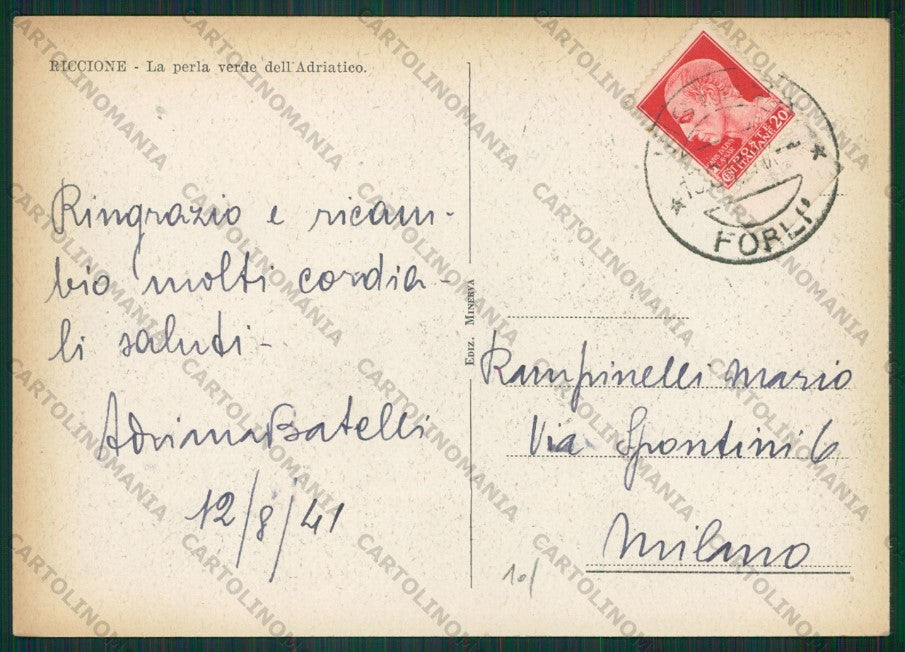 RICCIONE - La perla verde dell'Adriatico.
Ringrazio e ricam-
bio molti cordia-
li saluti-
Adriana Batelli
12/8/41
EDIZ. MINERVA
POSTE
ITALIANE
CENT 20
FORLI'
Rampinelli Mario
Via Spontini 6
Milano
10/
CARTOLINOMANIA